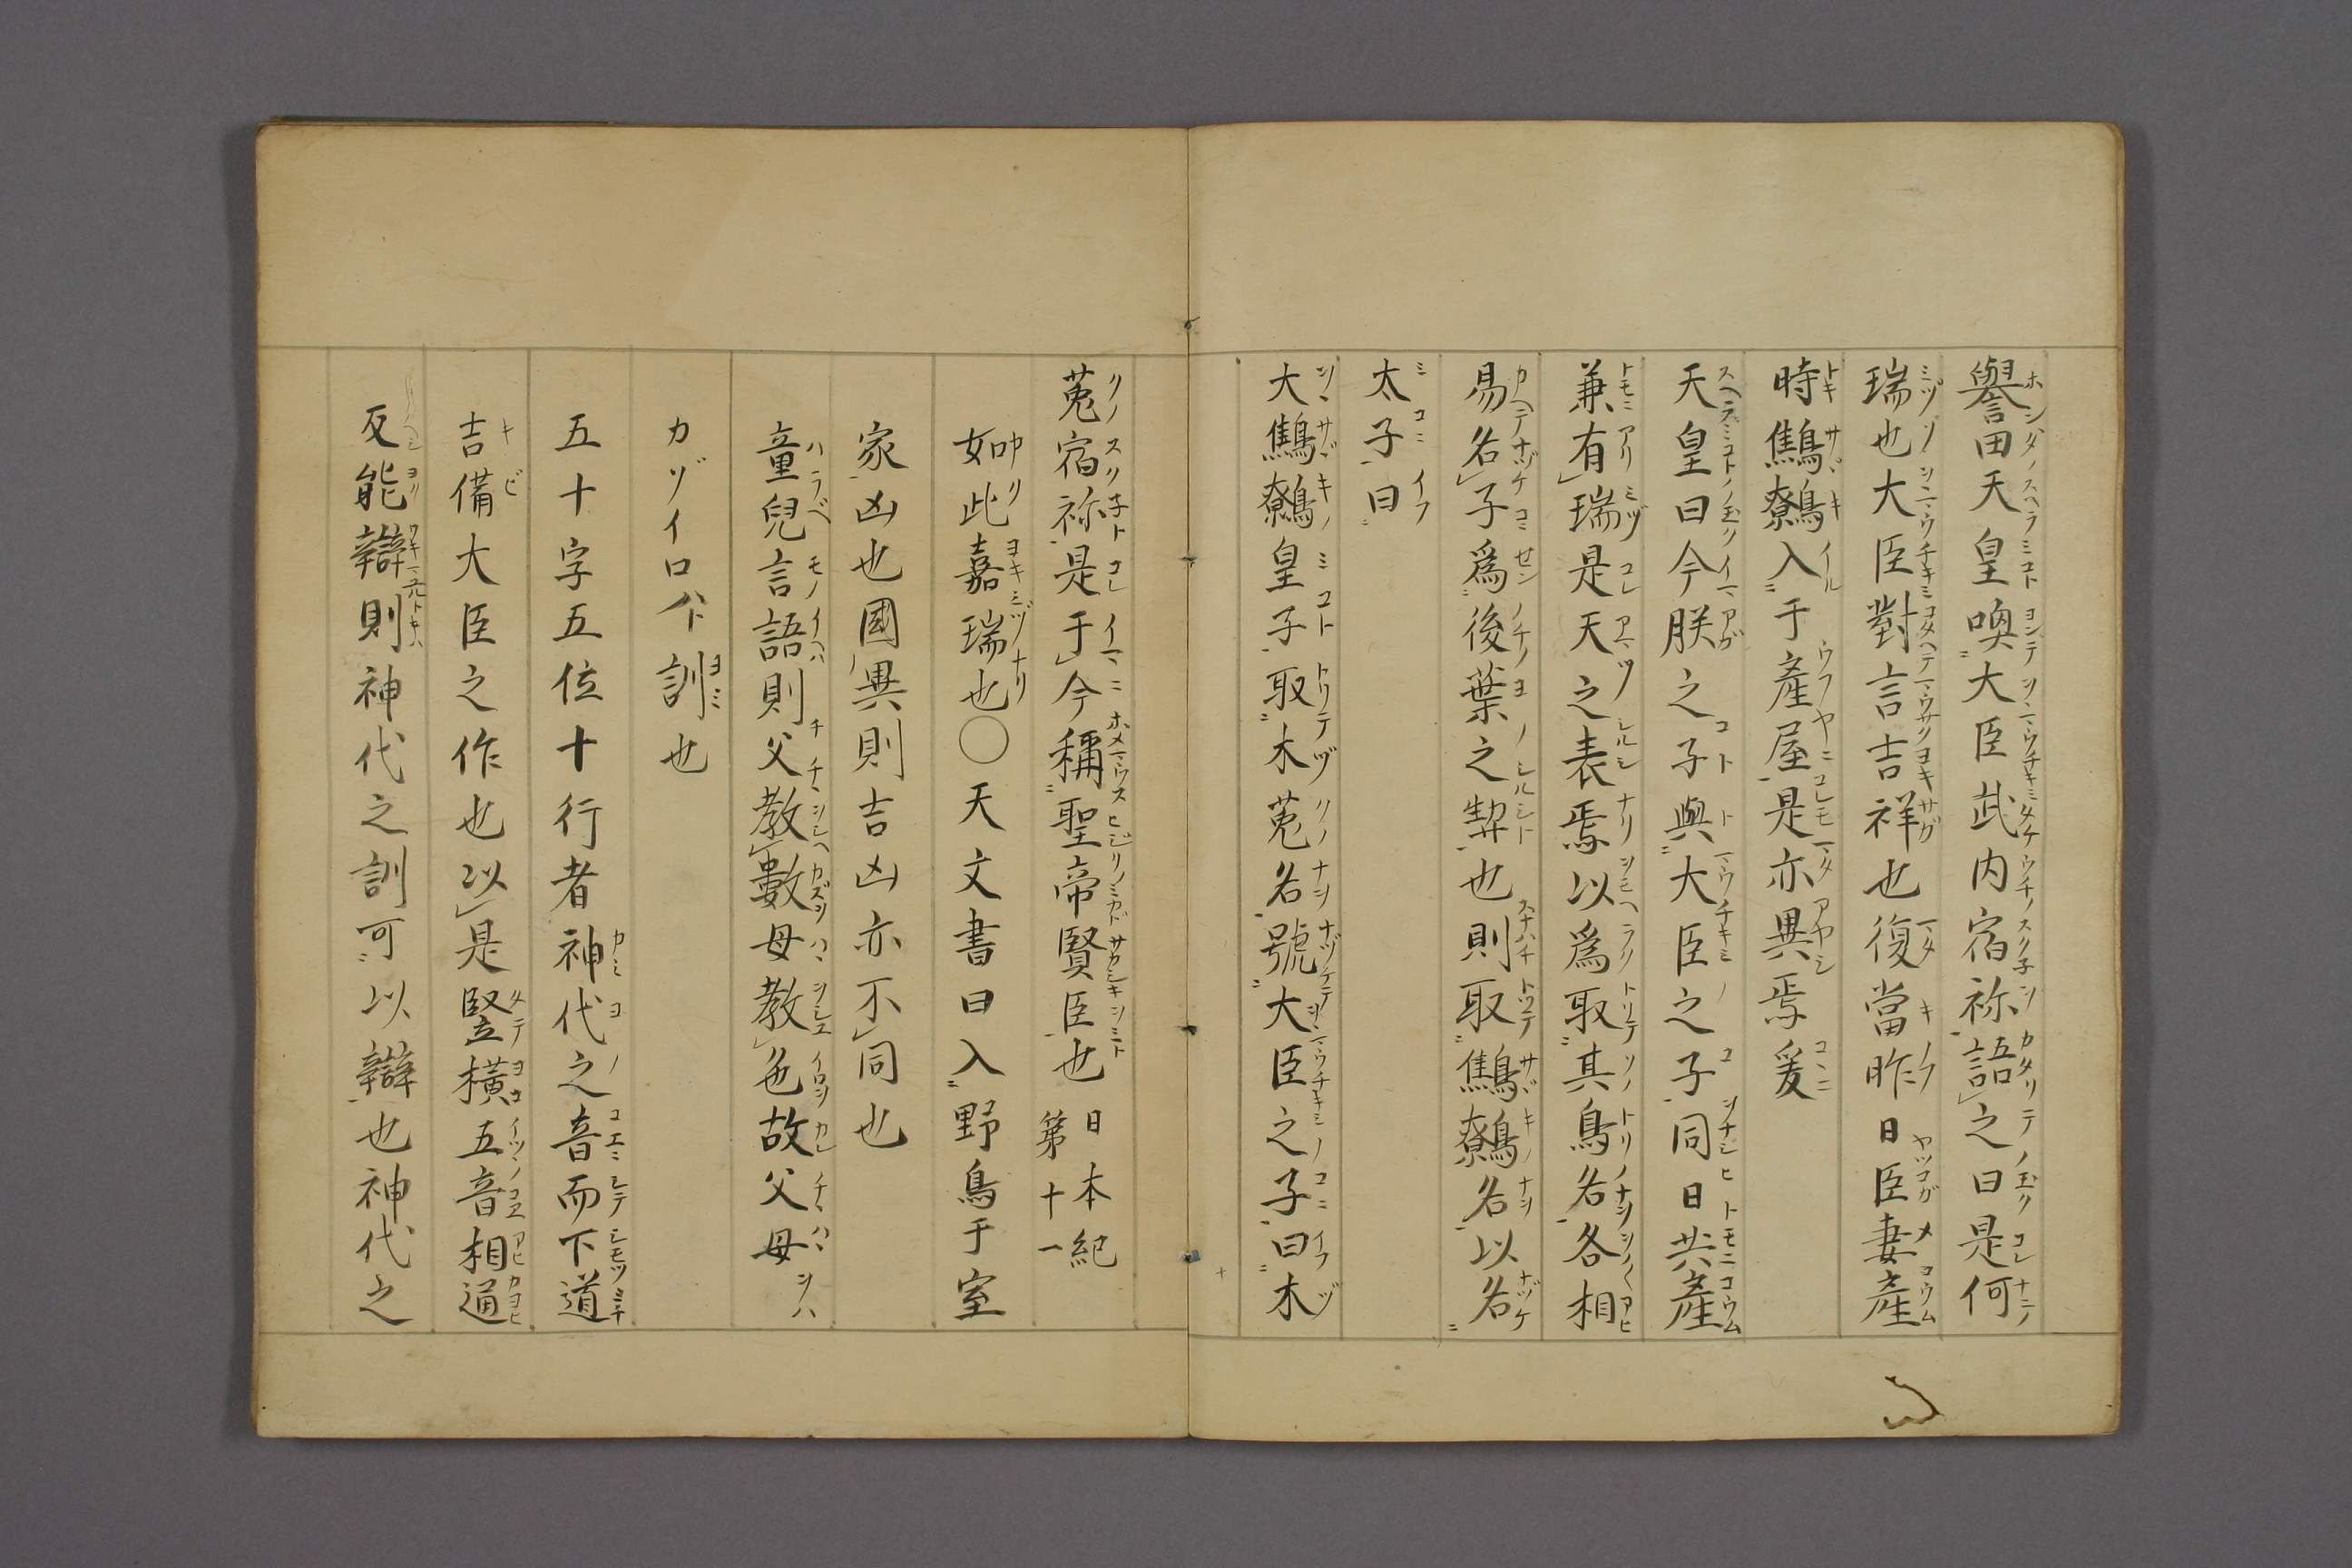 譽田天皇喚大臣武内宿祢語之曰是何
瑞也大臣對言吉祥也復當昨日臣妻產
時鷦鷯入于產屋是亦異焉爰
天皇曰今朕之子與大臣之子同日共產
兼有瑞是天之表焉以爲取其鳥名各相
易名子爲後葉之契也則取鷦鷯名以名
太子曰
大鷦鷯皇子取木菟名號大臣之子曰木
菟宿祢是于今稱聖帝賢臣也 日本紀第十一
如此嘉瑞也〇天文書曰入野鳥于室
家凶也國異則吉凶亦不同也
童兒言語則父教數母教色故父母
カヅイロハト訓也
五十字五位十行者神代之音而下道
吉備大臣之作也以是竪橫五音相通
反能辯則神代之訓可以辯也神代之